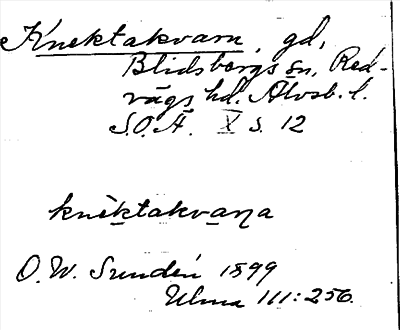 Knektakvarn, gd,
Blidsbergs sn, Red-
vägs hd. Älvsb. l.
S.O.Ä. X s. 12
knèktakvaṇa
O. W. Sundén 1899
Ulma 111:256.